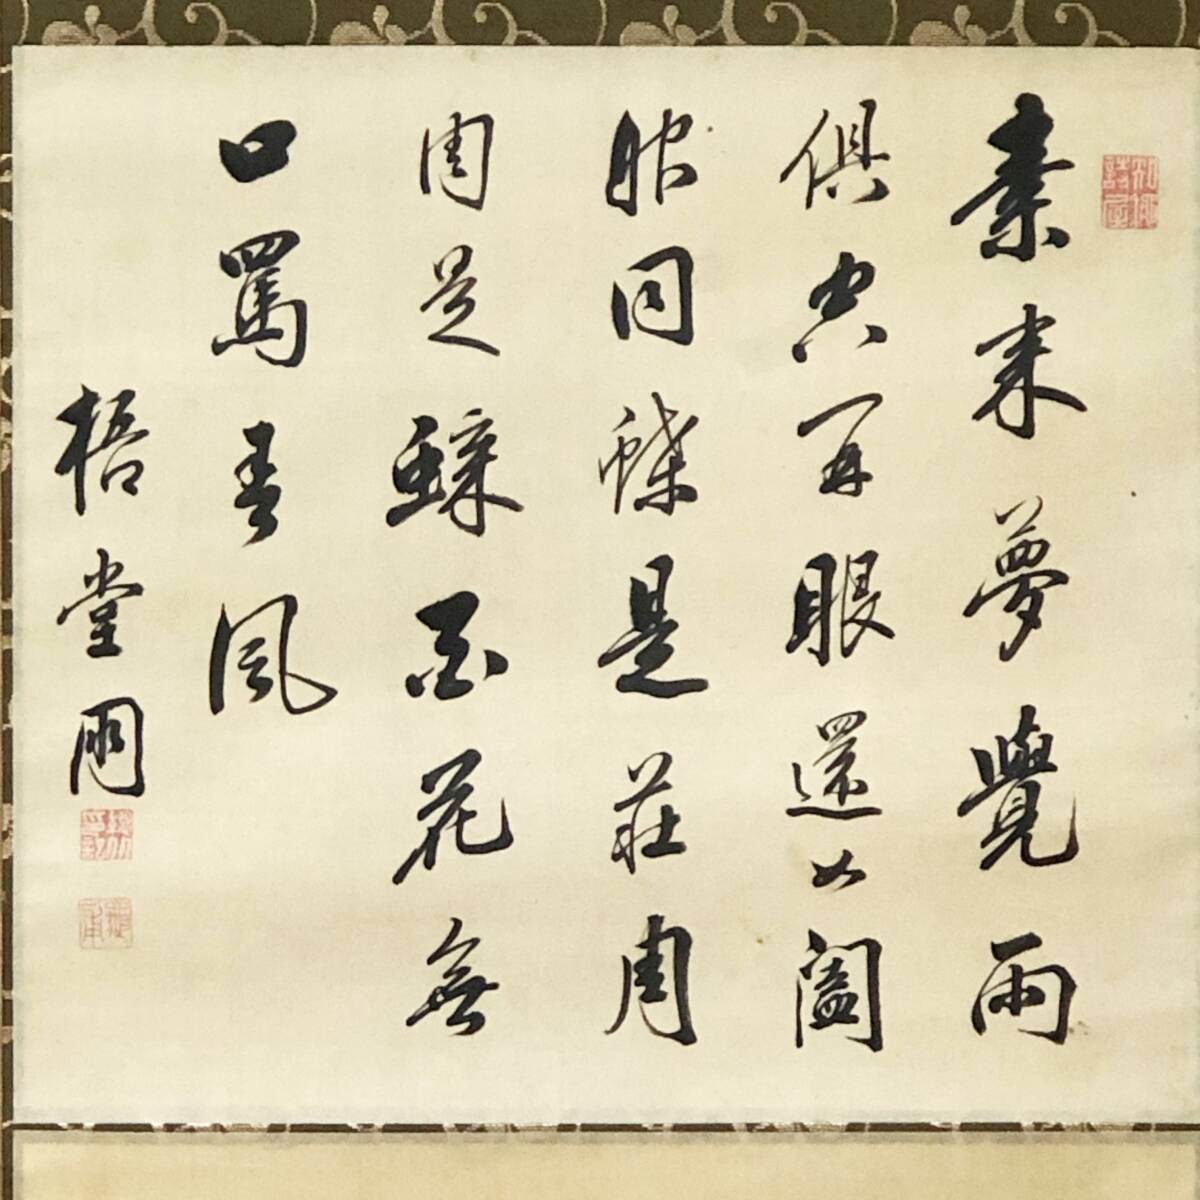 素来夢覺両
俱空開眼還如闔
眼同蝶是莊周
周是蝶百花無
口罵春風
梧堂